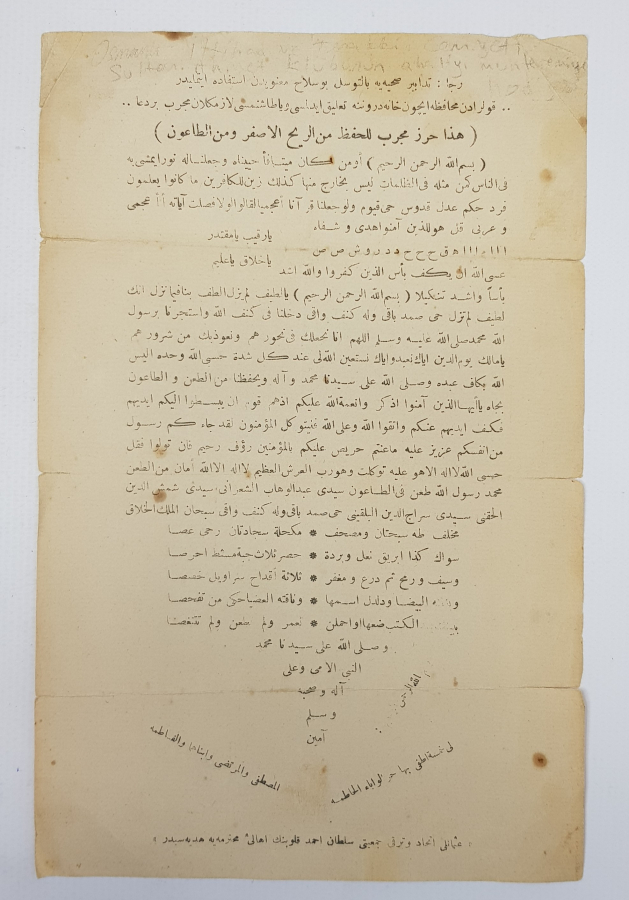 Osmanlı İttihad ve Terakki Cemiyeti
Sultan Ahmed
رجا : تدابير صحيه‌يه بالتوسل بوسلاح معنويدن استفاده ايتمليدر
قولرادن محافظه ايچون خانه دروننه تعليق ايدلسى وياطاشنمسى لازمكلان مجرب بردعا
( هذا حرز مجرب للحفظ من الريح الاصفر ومن الطاعون )
( بسم الله الرحمن الرحيم ) أومن كان ميتا فأحييناه وجعلناله نورا يمشى به
فى الناس كمن مثله فى الظلمات ليس بخارج منها كذلك زين للكافرين ما كانوا يعلمون
فرد حكم عدل قدوس حى قيوم ولوجعلناه قرآنا أعجميا لقالوا لولا فصلت آياته أأعجمى
وعربى قل هوللذين آمنوا هدى وشفاء
يارقيب يامقتدر
ااا ااا ه ق ح ح ح د د ر و ش ص ص
ياخلاق ياعليم
عسى الله ان يكف بأس الذين كفروا والله اشد
بأسا واشد تنكيلا ( بسم الله الرحمن الرحيم ) يالطيف لم يزل الطف بنا فيما نزل انك
لطيف لم تزل حى صمد باقى وله كنف واقى دخلنا فى كنف الله واستجرنا برسول
الله محمد صلى الله عليه وسلم اللهم انا نجعلك فى نحور هم ونعوذبك من شرور هم
يامالك يوم الدين اياك نعبدواياك نستعين الله لى عند كل شدة حسبى الله وحده اليس
الله بكاف عبده وصلى الله على سيدنا محمد وآله ويحفظنا من الطعن والطاعون
بجاه ياأيها الذين آمنوا اذكروا نعمة الله عليكم اذهم قوم ان يبسطوا اليكم ايديهم
فكف ايديهم عنكم واتقوا الله وعلى الله فليتوكل المؤمنون لقد جاءكم رسول
من انفسكم عزيز عليه ماعنتم حريص عليكم بالمؤمنين رؤف رحيم فان تولوا فقل
حسبى الله لااله الاهو عليه توكلت وهورب العرش العظيم لااله الاالله أمان من الطعن
محمد رسول الله طعن فى الطاعون سيدى عبدالوهاب الشعرانى سيدى شمش الدين
الحفنى سيدى سراج الدين البلقينى حى صمد باقى وله كنف واقى سبحان الملك الخلاق
مخلف طه سبحتان ومصحف * مكحلة سجادتان رحى عصا
سواك كذا ابريق نعل وبردة * حصر ثلاث جبة مشط احرصا
وسيف ورمح ثم درع ومغفر * ثلاثة أقداح سراويل خصصا
البيضا ودلدل اسمها * وناقته العضبا حكى من تفحصا
الكتب ضعها واحملن * لعمر ولم طعن ولم
وصلى الله على سيدنا محمد
النبى الامى وعلى
آله وصحبه
وسلم
آمين
الله الرحمن
لى خمسة اطفى بها حر الوباء الحاطمه
المصطفى والمرتضى وابناهما والفاطمه
« عثمانلى اتحاد وترقى جمعيتى سلطان احمد قلوبنك اهالئ محترمه‌يه هديه‌سيدر »